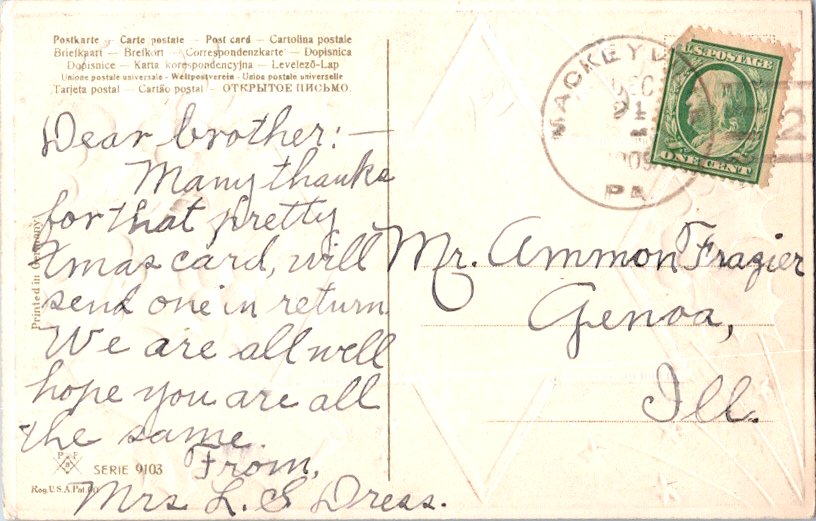 Postkarte — Carte postale — Post card — Cartolina postale
Briefkaart — Brefkort — Correspondenzkarte — Dopisnica
Dopisnice — Karta korespondencyjna — Levelező-Lap
Unione postale universale - Weltpostverein - Union postale universelle
Tarjeta postal — Cartão postal — ОТКРЫТОЕ ПИСЬМО.
MACKEYV
DEC
21
1909
PA
U.S. POSTAGE
ONE CENT
2
Dear brother:—
Many thanks
for that pretty
Xmas card, will
send one in return
We are all well
hope you are all
the same.
From,
Mrs L. S Dress.
Mr. Ammon Frazier
Genoa,
Ill.
Printed in Germany
P F
B
SERIE 9103
Reg. U.S.A. Pat. Off